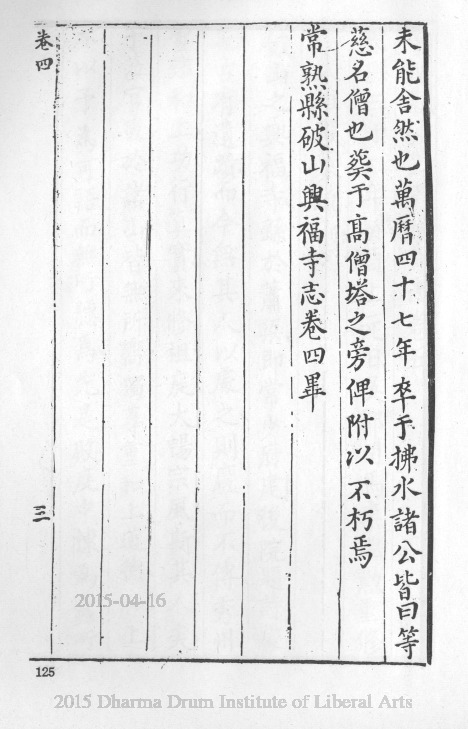 未能舍然也萬曆四十七年卒于拂水諸公皆曰等
慈名僧也葬于高僧塔之旁俾附以不朽焉
常熟縣破山興福寺志卷四畢
卷四
三
2015-04-16
125
2015 Dharma Drum Institute of Liberal Arts